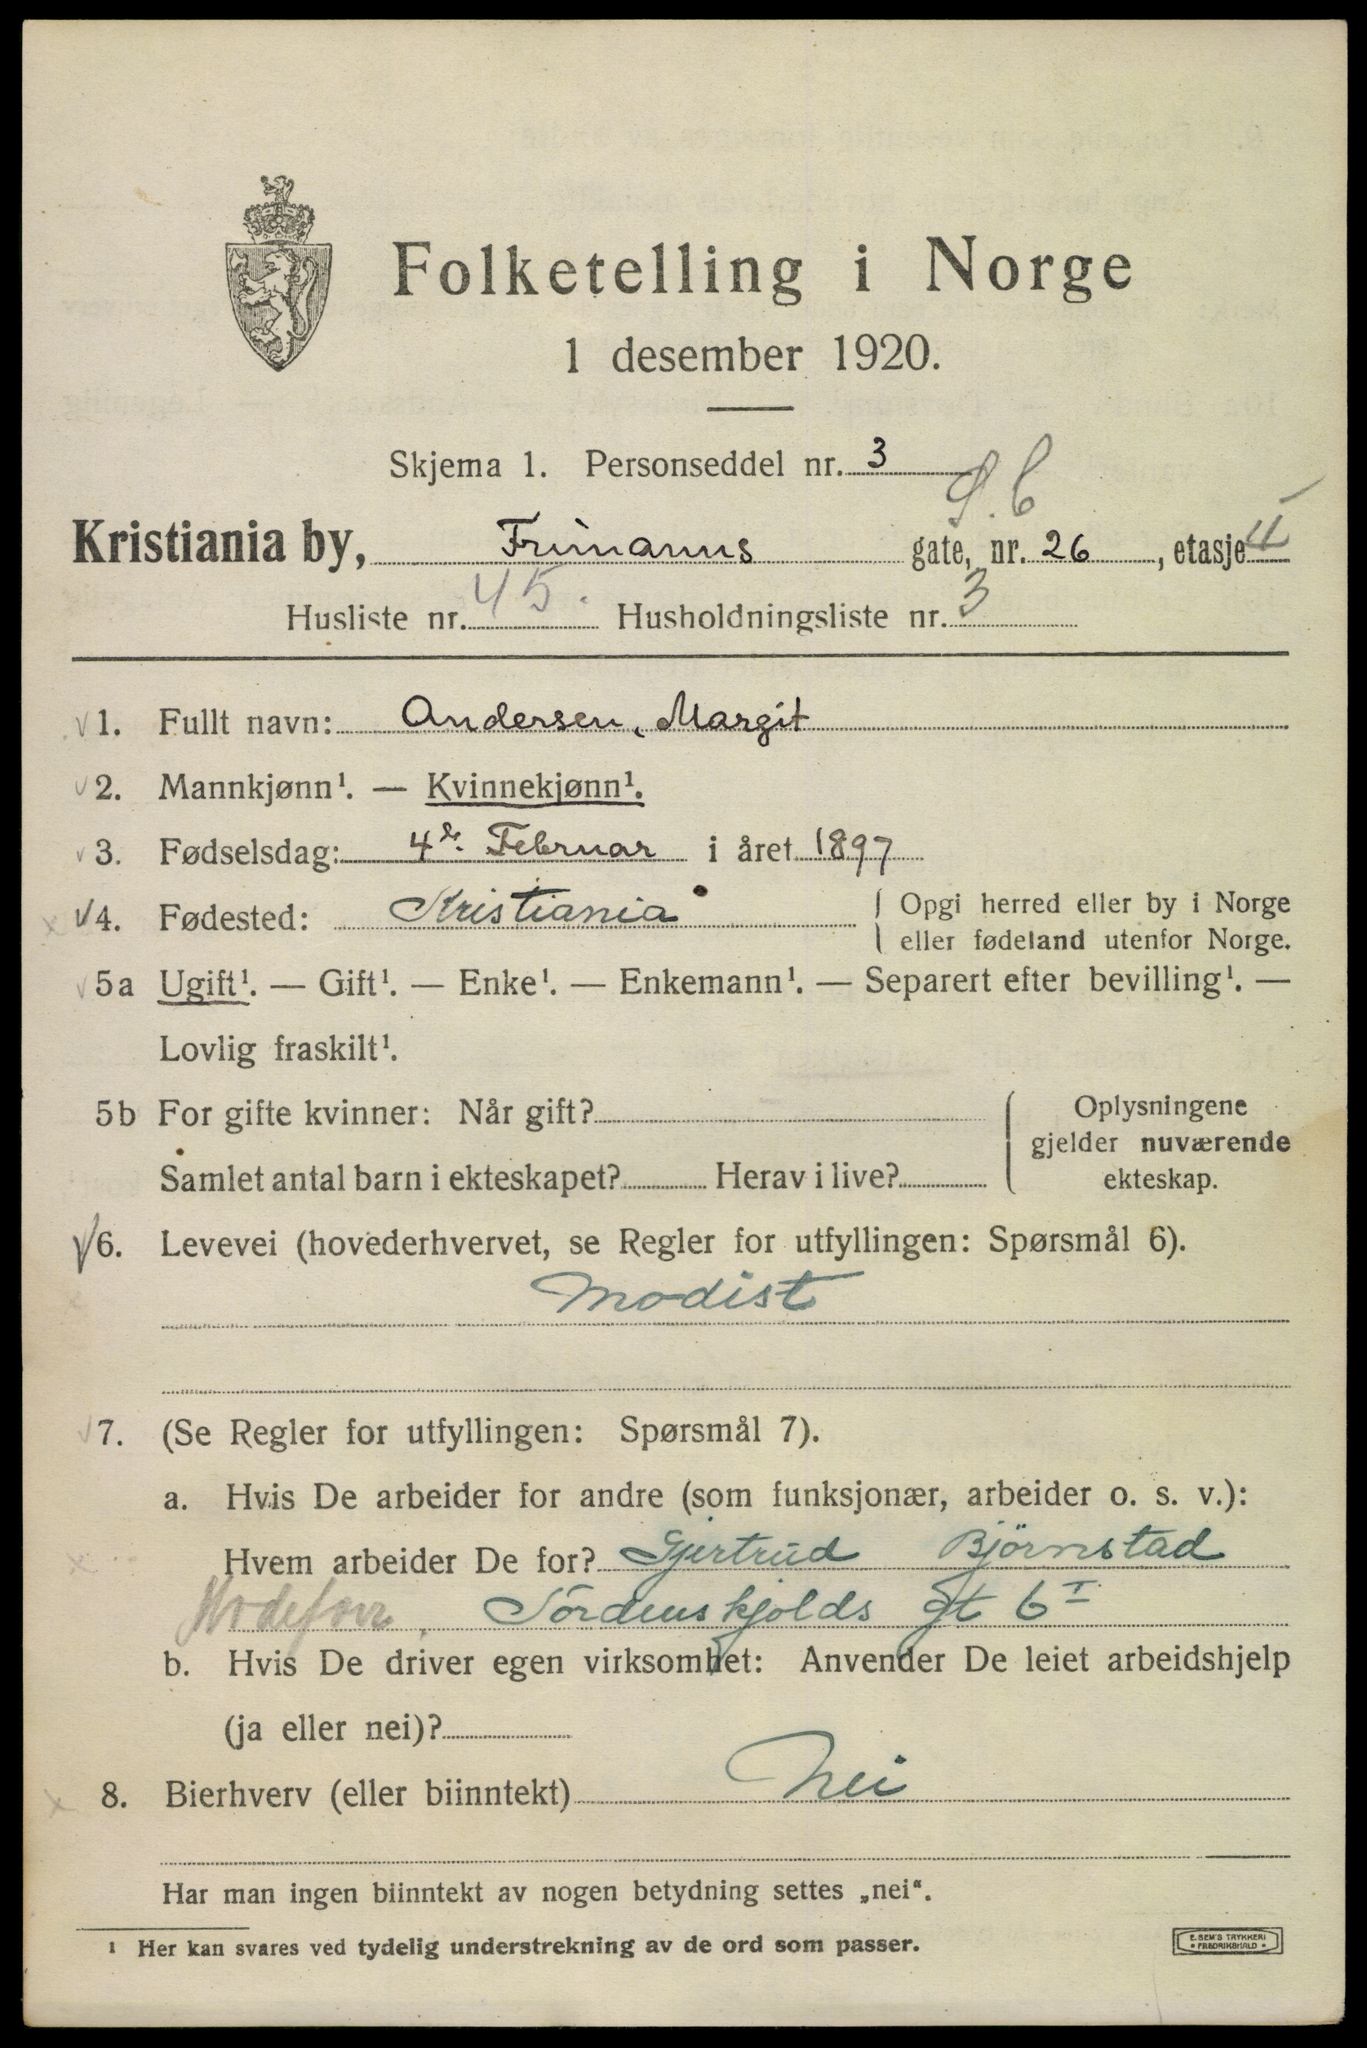 Folketelling i Norge
1 desember 1920.
Skjema 1. Personseddel nr. 3
S. C
Kristiania by, Frimanns gate, nr. 26, etasje II
Husliste nr. 45. Husholdningsliste nr. 3
1. Fullt navn: Andersen, Margit
2. Mannkjønn¹. — Kvinnekjønn¹.
3. Fødselsdag: 4de Februar i året 1897
4. Fødested: Kristiania { Opgi herred eller by i Norge
eller fødeland utenfor Norge.
5a Ugift¹. — Gift¹. — Enke¹. — Enkemann¹. — Separert efter bevilling¹. —
Lovlig fraskilt¹.
5b For gifte kvinner: Når gift?
Samlet antal barn i ekteskapet? Herav i live?
Oplysningene
gjelder nuværende
ekteskap.
6. Levevei (hovederhvervet, se Regler for utfyllingen: Spørsmål 6).
Modist
7. (Se Regler for utfyllingen: Spørsmål 7).
a. Hvis De arbeider for andre (som funksjonær, arbeider o. s. v.):
Hvem arbeider De for? Gjertrud Bjørnstad
Modeforr. Tordenskjolds gt 6 I
b. Hvis De driver egen virksomhet: Anvender De leiet arbeidshjelp
(ja eller nei)?
8. Bierhverv (eller biinntekt) Nei
Har man ingen biinntekt av nogen betydning settes „nei“.
¹ Her kan svares ved tydelig understrekning av de ord som passer.
E. SEM'S TRYKKERI
• FREDRIKSHALD •